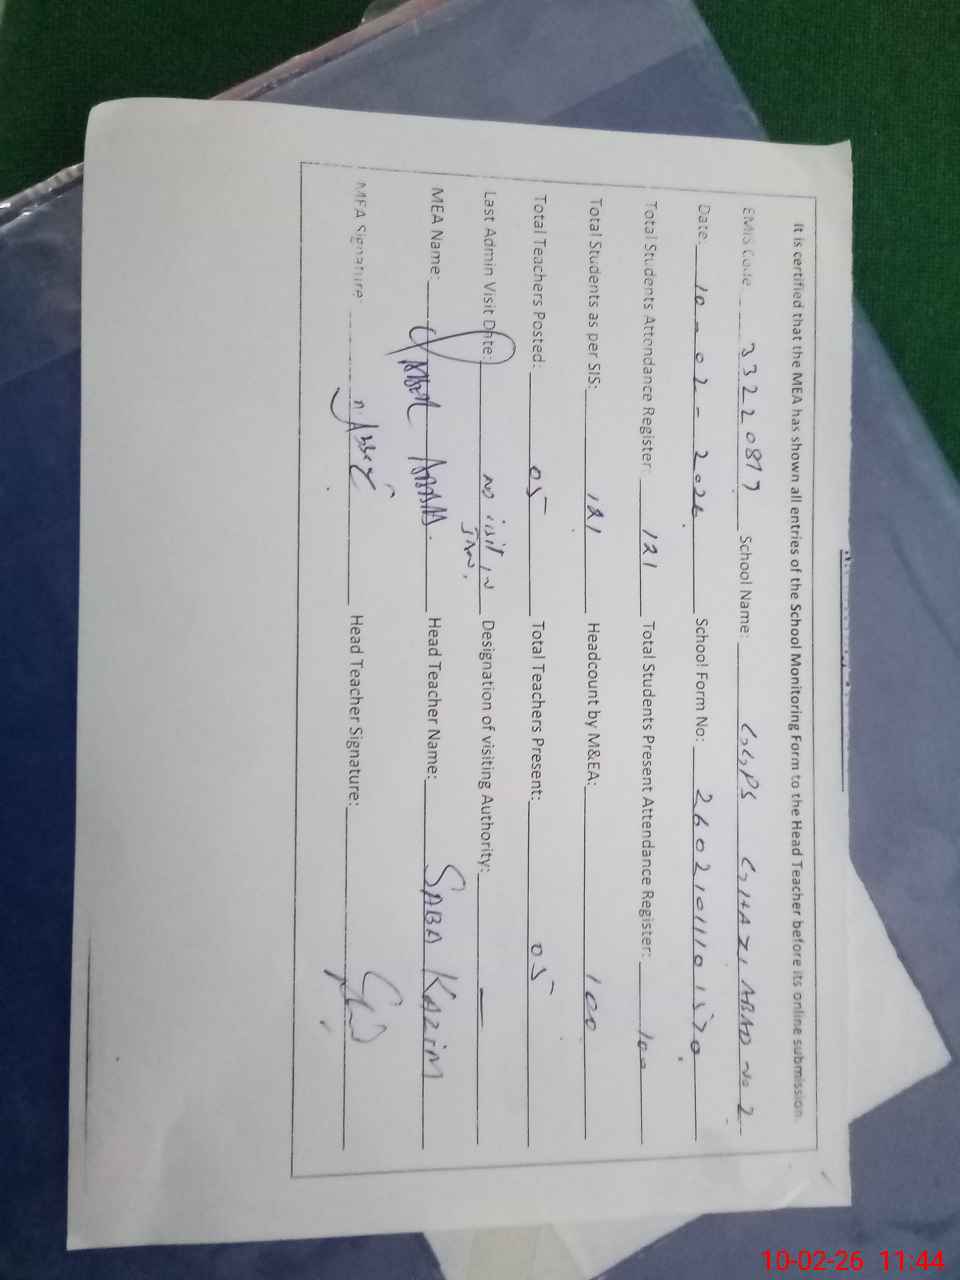 It is certified that the MEA has shown all entries of the School Monitoring Form to the Head Teacher before its online submission.
EMIS Code: 33220877 School Name: GGPS GHAZI ABAD No 2
Date 10-02-2026 School Form No:
Total Students Attendance Register: 121 Total Students Present Attendance Register: 100
Total Students as per SIS: 121 Headcount by M&EA: 100
Total Teachers Posted: 05 Total Teachers Present: 05
Last Admin Visit Date: No visit in Jan. Designation of visiting Authority: —
MEA Name: Head Teacher Name: SABA KAZIM
MEA Signature Head Teacher Signature:
10-02-26 11:44